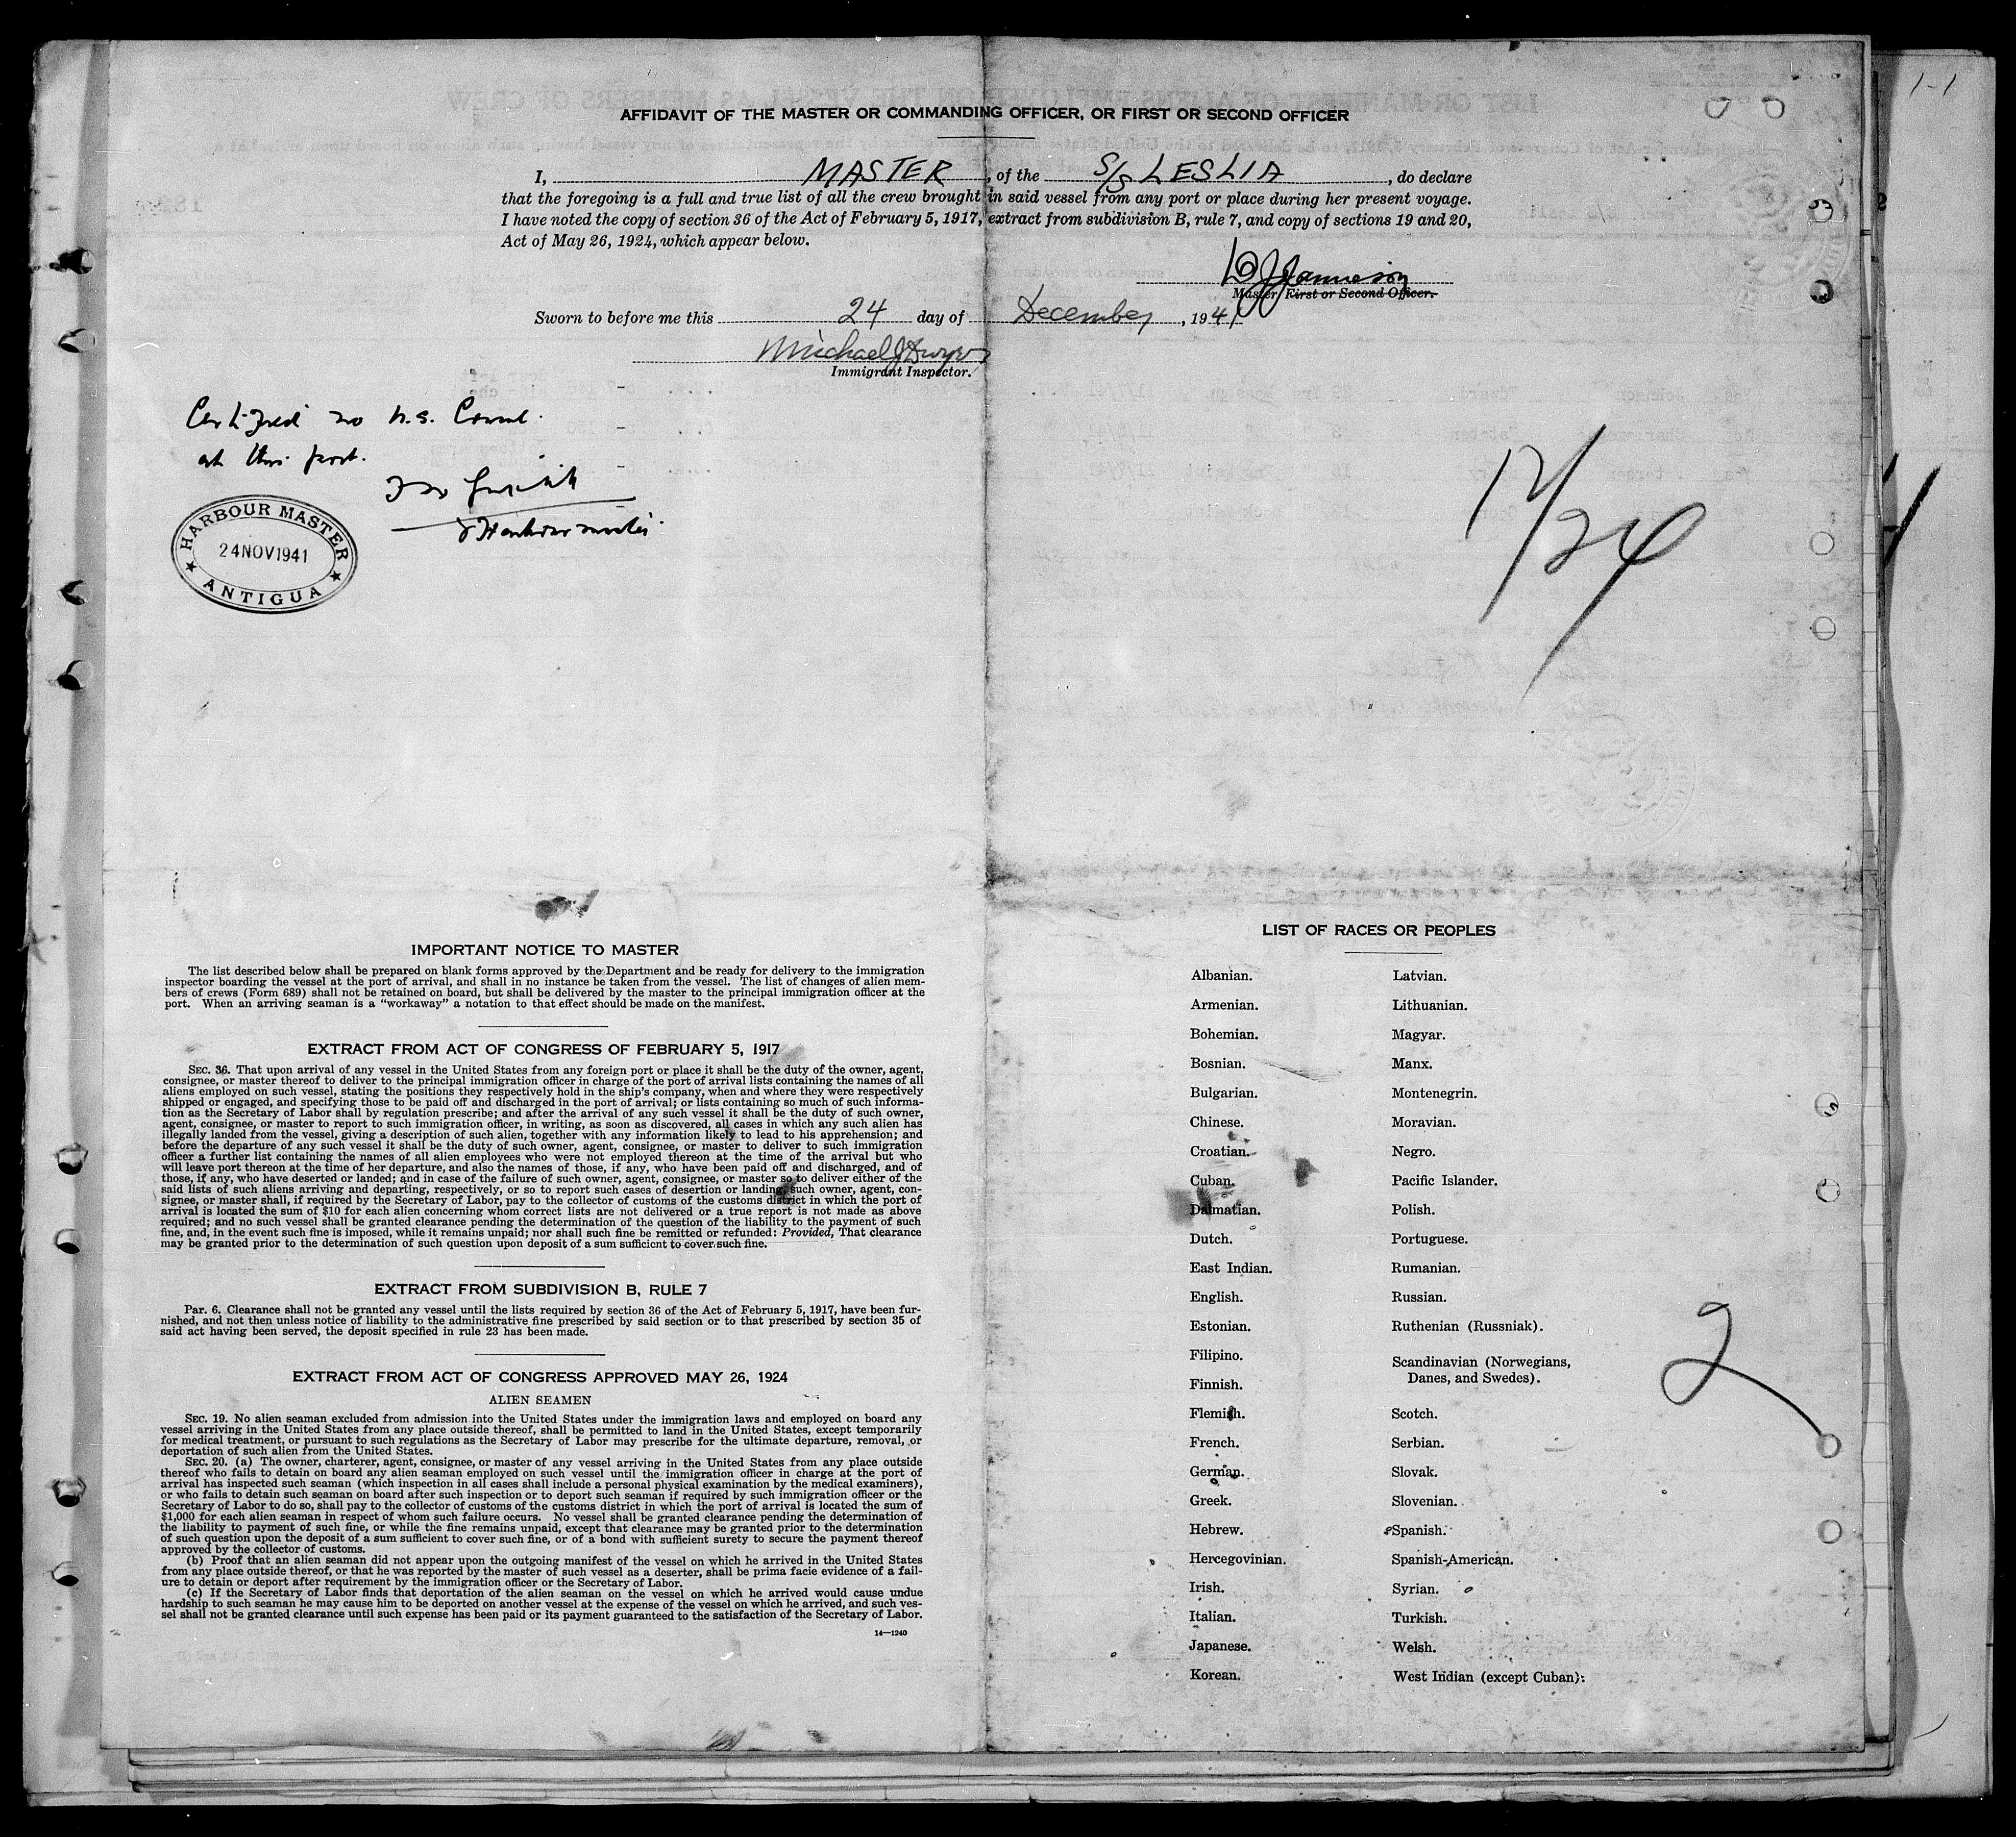 1-1
AFFIDAVIT OF THE MASTER OR COMMANDING OFFICER, OR FIRST OR SECOND OFFICER
I, MASTER, of the S/S LESLIA, do declare
that the foregoing is a full and true list of all the crew brought in said vessel from any port or place during her present voyage.
I have noted the copy of section 36 of the Act of February 5, 1917, extract from subdivision B, rule 7, and copy of sections 19 and 20,
Act of May 26, 1924, which appear below.
Jamieson
Master, First or Second Officer.
Sworn to before me this 24 day of December, 1941
Michael J Dwyer
Immigrant Inspector.
Certified no U.S. Consul.
at this port.
Harbour Master
HARBOUR MASTER
24 NOV 1941
ANTIGUA
12/24
IMPORTANT NOTICE TO MASTER
The list described below shall be prepared on blank forms approved by the Department and be ready for delivery to the immigration
inspector boarding the vessel at the port of arrival, and shall in no instance be taken from the vessel. The list of changes of alien mem-
bers of crews (Form 689) shall not be retained on board, but shall be delivered by the master to the principal immigration officer at the
port. When an arriving seaman is a “workaway” a notation to that effect should be made on the manifest.
EXTRACT FROM ACT OF CONGRESS OF FEBRUARY 5, 1917
SEC. 36. That upon arrival of any vessel in the United States from any foreign port or place it shall be the duty of the owner, agent,
consignee, or master thereof to deliver to the principal immigration officer in charge of the port of arrival lists containing the names of all
aliens employed on such vessel, stating the positions they respectively hold in the ship's company, when and where they were respectively
shipped or engaged, and specifying those to be paid off and discharged in the port of arrival; or lists containing so much of such informa-
tion as the Secretary of Labor shall by regulation prescribe; and after the arrival of any such vessel it shall be the duty of such owner,
agent, consignee, or master to report to such immigration officer, in writing, as soon as discovered, all cases in which any such alien has
illegally landed from the vessel, giving a description of such alien, together with any information likely to lead to his apprehension; and
before the departure of any such vessel it shall be the duty of such owner, agent, consignee, or master to deliver to such immigration
officer a further list containing the names of all alien employees who were not employed thereon at the time of the arrival but who
will leave port thereon at the time of her departure, and also the names of those, if any, who have been paid off and discharged, and of
those, if any, who have deserted or landed; and in case of the failure of such owner, agent, consignee, or master so to deliver either of the
said lists of such aliens arriving and departing, respectively, or so to report such cases of desertion or landing, such owner, agent, con-
signee, or master shall, if required by the Secretary of Labor, pay to the collector of customs of the customs district in which the port of
arrival is located the sum of $10 for each alien concerning whom correct lists are not delivered or a true report is not made as above
required; and no such vessel shall be granted clearance pending the determination of the question of the liability to the payment of such
fine, and, in the event such fine is imposed, while it remains unpaid; nor shall such fine be remitted or refunded: Provided, That clearance
may be granted prior to the determination of such question upon deposit of a sum sufficient to cover such fine.
EXTRACT FROM SUBDIVISION B, RULE 7
Par. 6. Clearance shall not be granted any vessel until the lists required by section 36 of the Act of February 5, 1917, have been fur-
nished, and not then unless notice of liability to the administrative fine prescribed by said section or to that prescribed by section 35 of
said act having been served, the deposit specified in rule 23 has been made.
EXTRACT FROM ACT OF CONGRESS APPROVED MAY 26, 1924
ALIEN SEAMEN
SEC. 19. No alien seaman excluded from admission into the United States under the immigration laws and employed on board any
vessel arriving in the United States from any place outside thereof, shall be permitted to land in the United States, except temporarily
for medical treatment, or pursuant to such regulations as the Secretary of Labor may prescribe for the ultimate departure, removal, or
deportation of such alien from the United States.
SEC. 20. (a) The owner, charterer, agent, consignee, or master of any vessel arriving in the United States from any place outside
thereof who fails to detain on board any alien seaman employed on such vessel until the immigration officer in charge at the port of
arrival has inspected such seaman (which inspection in all cases shall include a personal physical examination by the medical examiners),
or who fails to detain such seaman on board after such inspection or to deport such seaman if required by such immigration officer or the
Secretary of Labor to do so, shall pay to the collector of customs of the customs district in which the port of arrival is located the sum of
$1,000 for each alien seaman in respect of whom such failure occurs. No vessel shall be granted clearance pending the determination of
the liability to payment of such fine, or while the fine remains unpaid, except that clearance may be granted prior to the determination
of such question upon the deposit of a sum sufficient to cover such fine, or of a bond with sufficient surety to secure the payment thereof
approved by the collector of customs.
(b) Proof that an alien seaman did not appear upon the outgoing manifest of the vessel on which he arrived in the United States
from any place outside thereof, or that he was reported by the master of such vessel as a deserter, shall be prima facie evidence of a fail-
ure to detain or deport after requirement by the immigration officer or the Secretary of Labor.
(c) If the Secretary of Labor finds that deportation of the alien seaman on the vessel on which he arrived would cause undue
hardship to such seaman he may cause him to be deported on another vessel at the expense of the vessel on which he arrived, and such ves-
sel shall not be granted clearance until such expense has been paid or its payment guaranteed to the satisfaction of the Secretary of Labor.
14—1240
LIST OF RACES OR PEOPLES
Albanian.
Armenian.
Bohemian.
Bosnian.
Bulgarian.
Chinese.
Croatian.
Cuban.
Dalmatian.
Dutch.
East Indian.
English.
Estonian.
Filipino.
Finnish.
Flemish.
French.
German.
Greek.
Hebrew.
Hercegovinian.
Irish.
Italian.
Japanese.
Korean.
Latvian.
Lithuanian.
Magyar.
Manx.
Montenegrin.
Moravian.
Negro.
Pacific Islander.
Polish.
Portuguese.
Rumanian.
Russian.
Ruthenian (Russniak).
Scandinavian (Norwegians,
Danes, and Swedes).
Scotch.
Serbian.
Slovak.
Slovenian.
Spanish.
Spanish-American.
Syrian.
Turkish.
Welsh.
West Indian (except Cuban).
2